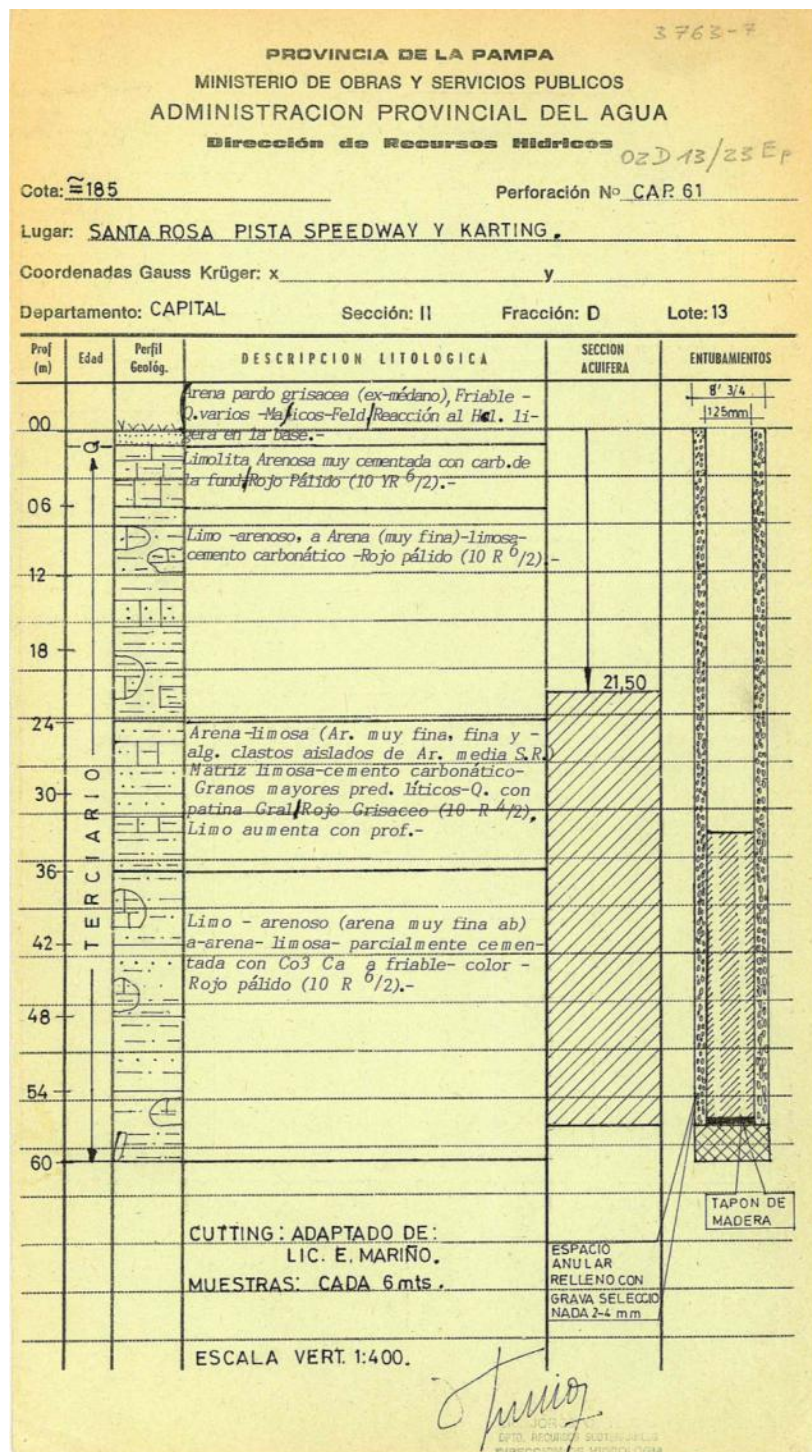 3763-7
PROVINCIA DE LA PAMPA
MINISTERIO DE OBRAS Y SERVICIOS PUBLICOS
ADMINISTRACION PROVINCIAL DEL AGUA
Dirección de Recursos Hídricos
OZD 13/23 Ep
Cota: ≅185 Perforación Nº CAP. 61
Lugar: SANTA ROSA PISTA SPEEDWAY Y KARTING.
Coordenadas Gauss Krüger: x y
Departamento: CAPITAL Sección: II Fracción: D Lote: 13
Prof (m) Edad Perfil Geológ. DESCRIPCION LITOLOGICA SECCION ACUIFERA ENTUBAMIENTOS
8' 3/4
125mm
Arena pardo grisacea (ex-médano), Friable -
Q.varios -Maficos-Feld/Reacción al Hcl. li-
gera en la base.-
00
Q
Limolita Arenosa muy cementada con carb.de
la fund/Rojo Pálido (10 YR 6/2).-
06
Limo -arenoso, a Arena (muy fina)-limosa-
cemento carbonático -Rojo pálido (10 R 6/2).-
12
18
21,50
24
Arena-limosa (Ar. muy fina, fina y -
alg. clastos aislados de Ar. media S.R.)
Matriz limosa-cemento carbonático-
Granos mayores pred. líticos-Q. con
patina Gral/Rojo Grisaceo (10-R 4/2),
Limo aumenta con prof.-
30
TERCIARIO
36
Limo - arenoso (arena muy fina ab)
a-arena- limosa- parcialmente cemen-
tada con Co3 Ca a friable- color -
Rojo pálido (10 R 6/2).-
42
48
54
60
TAPON DE
MADERA
CUTTING: ADAPTADO DE:
LIC. E. MARIÑO.
MUESTRAS: CADA 6 mts.
ESPACIO
ANULAR
RELLENO CON
GRAVA SELECCIO
NADA 2-4 mm
ESCALA VERT. 1:400.
DPTO. RECURSOS SUBTERRANEOS